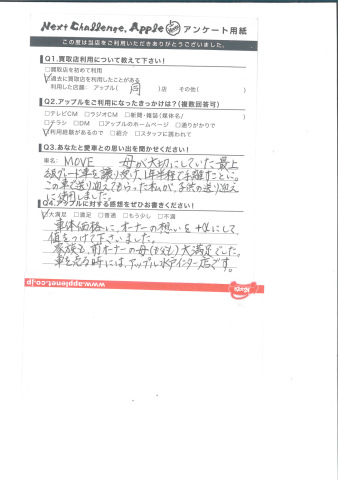 Next Challenge. Apple アンケート用紙
この度は当店をご利用いただきありがとうございました。
Q1.買取店利用について教えて下さい!
□買取店を初めて利用
☑過去に買取店を利用したことがある
利用した店舗: アップル( 同 )店 その他( )
Q2.アップルをご利用になったきっかけは?(複数回答可)
□テレビCM □ラジオCM □新聞・雑誌(媒体名/ )
□チラシ □DM □アップルのホームページ □通りがかりで
☑利用経験があるので □紹介 □スタッフに誘われて
Q3.あなたと愛車との思い出を聞かせください!
車名: MOVE 母が大切にしていた最上
級グレード車を譲り受け、1年半程で手離すことに。
この車で送り迎えてもらった私が、子供の送り迎え
に使用しました。
Q4.アップルに対する感想をぜひお書きください!
☑大満足 □満足 □普通 □もう少し □不満
車体価格に、オーナーの想いを+αにして
値をつけて下さいました。
家族も、前オーナーの母(もちろん)大満足でした。
車を売る時には、アップル水戸インター店です。
www.applenet.co.jp